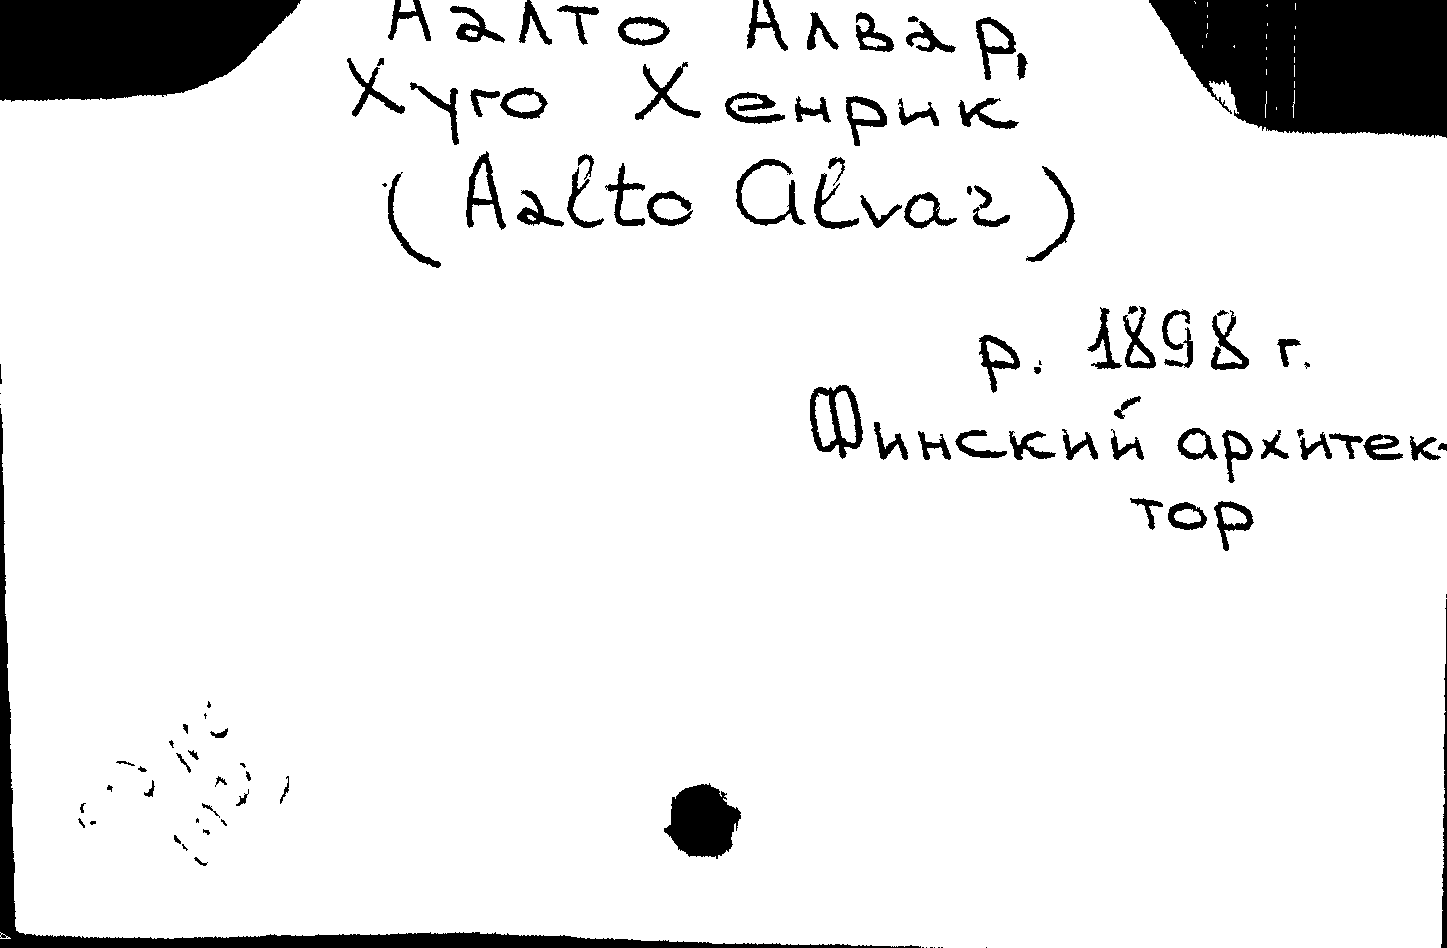 Аалто Алвар,
Хуго Хенрик
(Aalto Alvar)
р. 1898 г.
Финский архитек-
тор